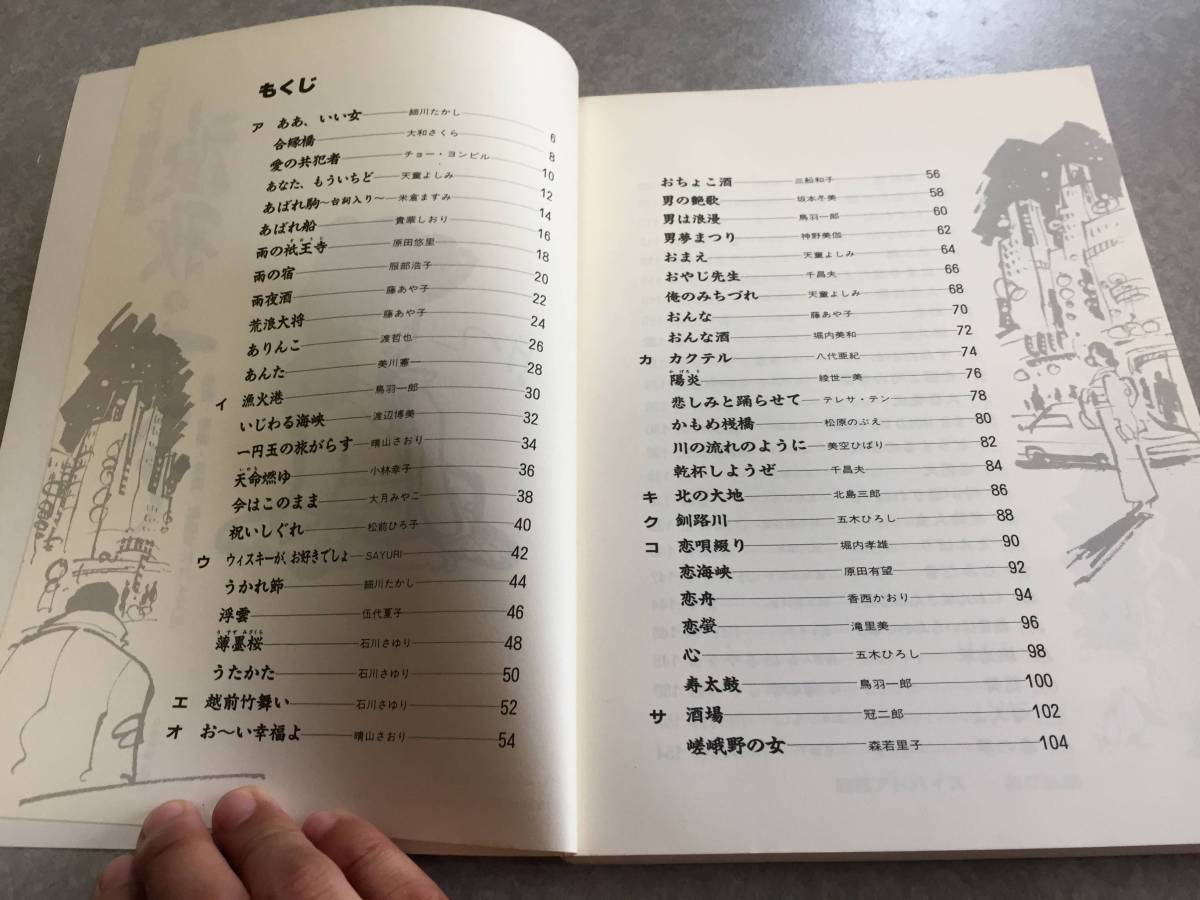 もくじ
ア ああ、いい女 細川たかし 6
合縁橋 大和さくら 8
愛の共犯者 チョー・ヨンピル 10
あなた、もういちど 天童よしみ 12
あばれ駒～台詞入り～ 米倉ますみ 14
あばれ船 貴華しおり 16
雨の祇王寺 原田悠里 18
雨の宿 服部浩子 20
雨夜酒 藤あや子 22
荒浪大将 藤あや子 24
ありんこ 渡哲也 26
あんた 美川憲一 28
イ 漁火港 鳥羽一郎 30
いじわる海峡 渡辺博美 32
一円玉の旅がらす 晴山さおり 34
天命燃ゆ 小林幸子 36
今はこのまま 大月みやこ 38
祝いしぐれ 松前ひろ子 40
ウ ウィスキーが、お好きでしょ SAYURI 42
うかれ節 細川たかし 44
浮雲 伍代夏子 46
薄墨桜 石川さゆり 48
うたかた 石川さゆり 50
エ 越前竹舞い 石川さゆり 52
オ お～い幸福よ 晴山さおり 54
おちょこ酒 三船和子 56
男の艶歌 坂本冬美 58
男は浪漫 鳥羽一郎 60
男夢まつり 神野美伽 62
おまえ 天童よしみ 64
おやじ先生 千昌夫 66
俺のみちづれ 天童よしみ 68
おんな 藤あや子 70
おんな酒 堀内美和 72
カ カクテル 八代亜紀 74
陽炎 綾世一美 76
悲しみと踊らせて テレサ・テン 78
かもめ桟橋 松原のぶえ 80
川の流れのように 美空ひばり 82
乾杯しようぜ 千昌夫 84
キ 北の大地 北島三郎 86
ク 釧路川 五木ひろし 88
コ 恋唄綴り 堀内孝雄 90
恋海峡 原田有望 92
恋舟 香西かおり 94
恋螢 滝里美 96
心 五木ひろし 98
寿太鼓 鳥羽一郎 100
サ 酒場 冠二郎 102
嵯峨野の女 森若里子 104